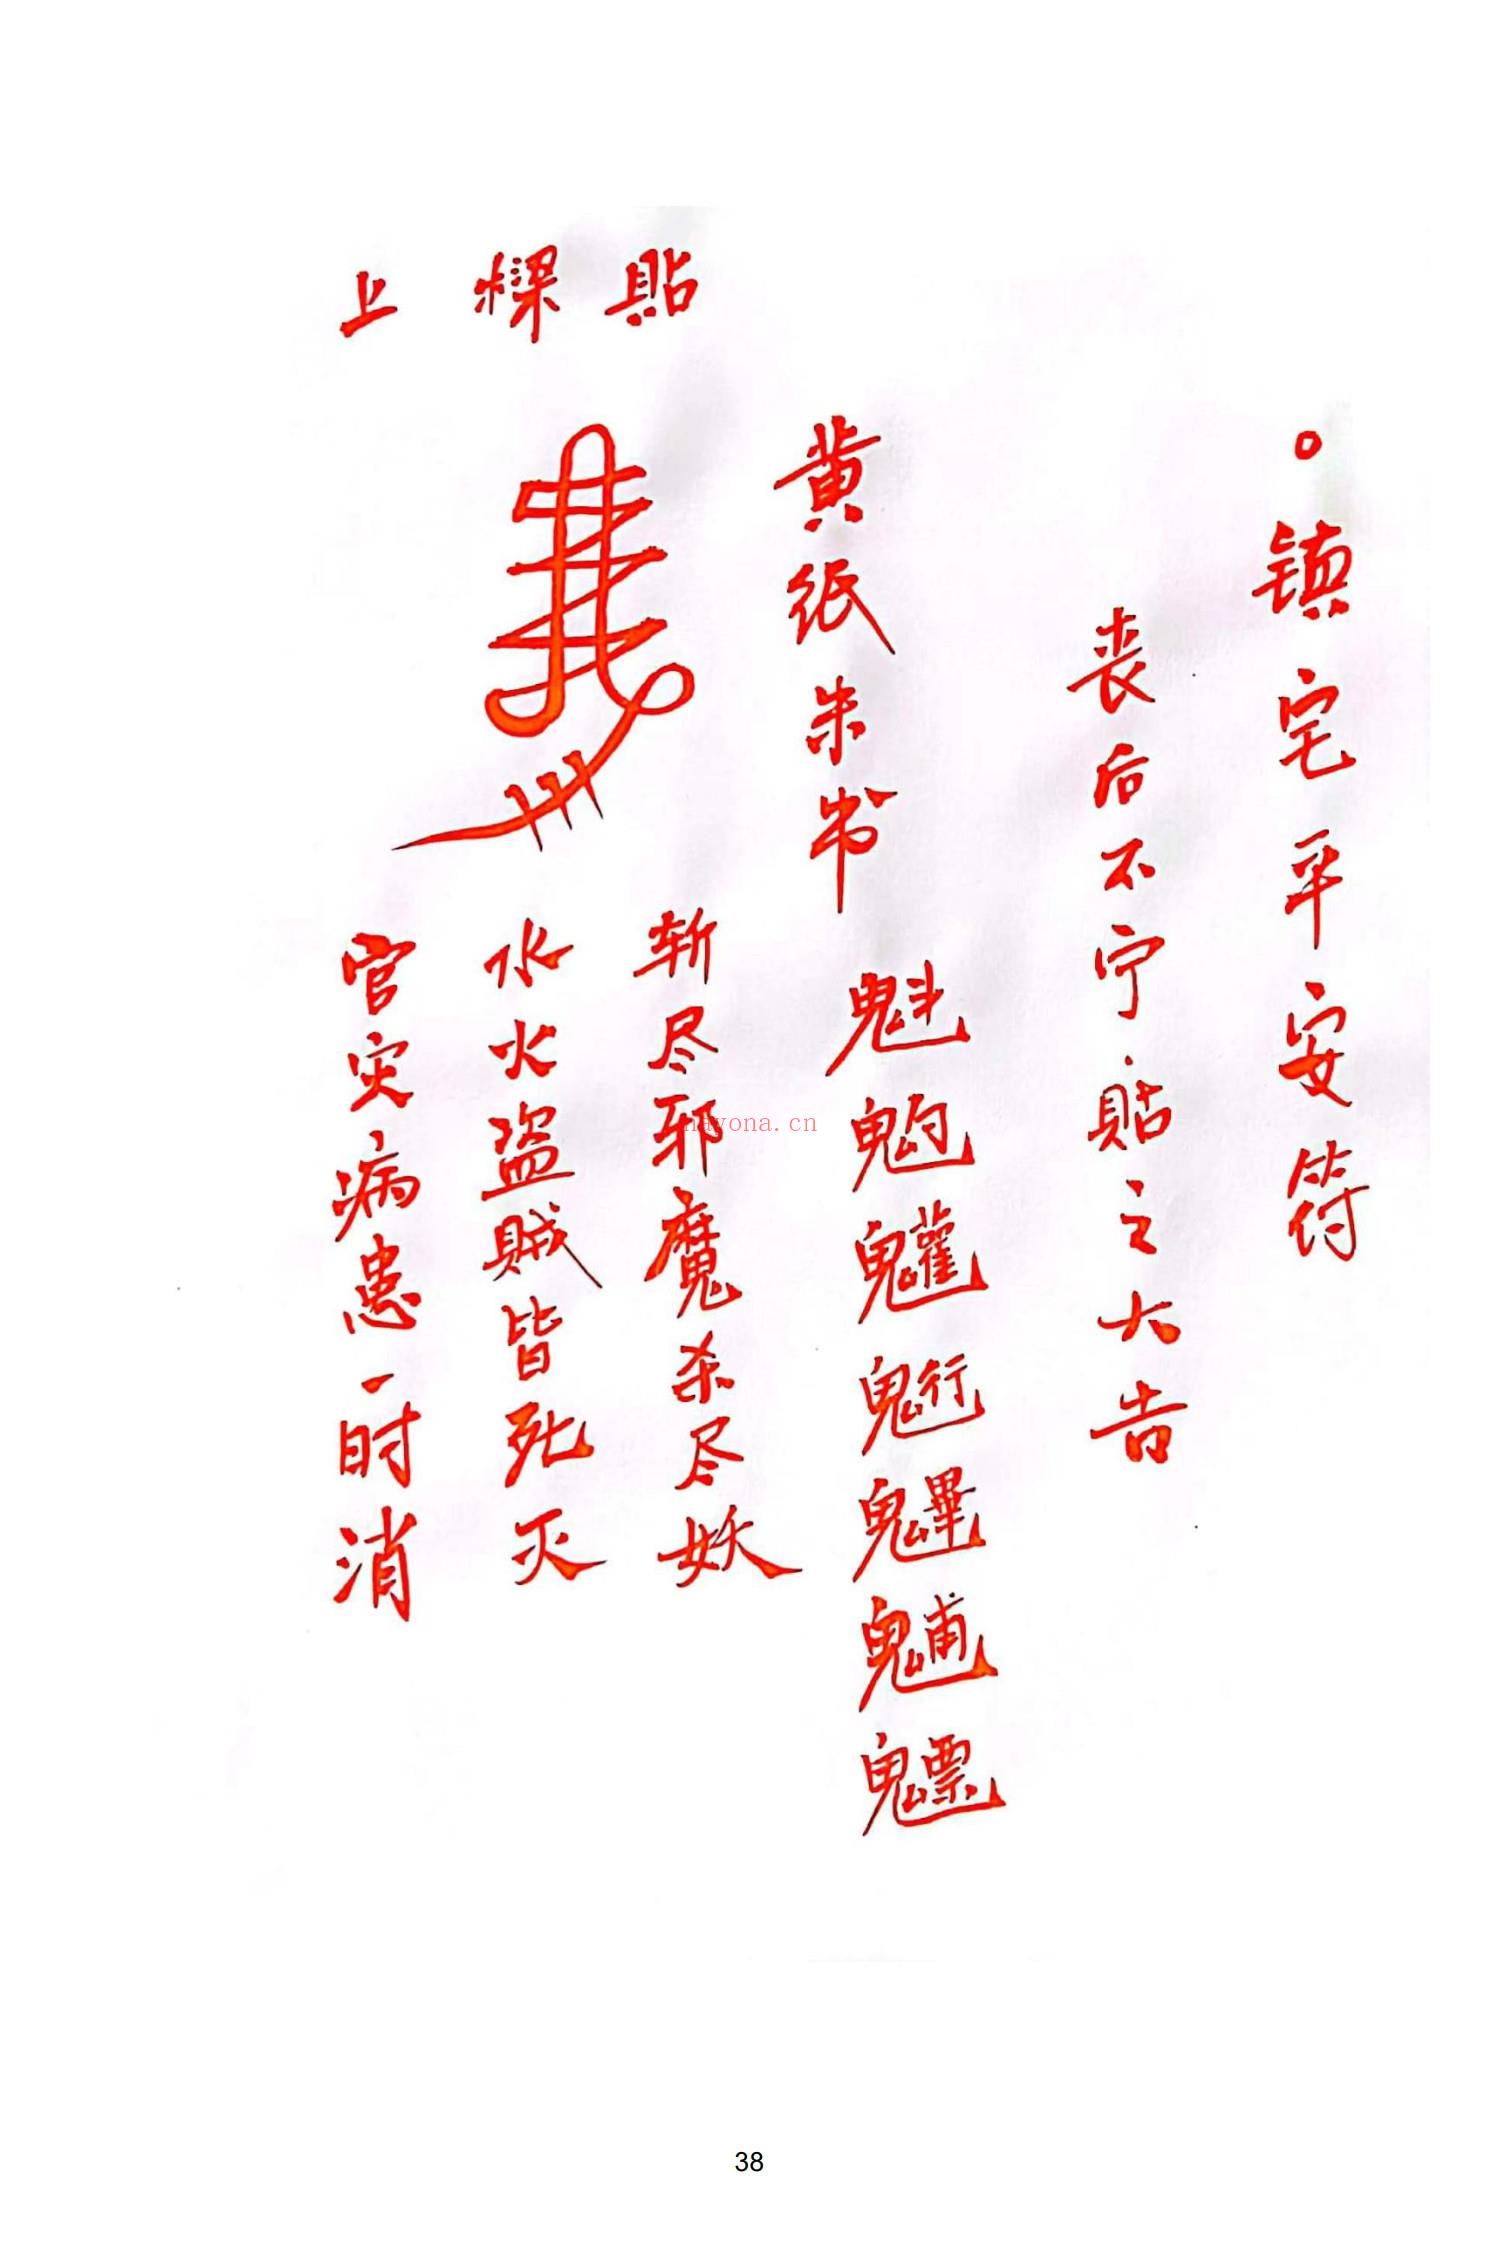 镇宅平安符
丧后不宁.貼之大吉
黄纸朱书
魁䰢魓魒
貼樑上
斩尽邪魔杀尽妖
水火盗贼皆死灭
官灾病患一时消
nayona.cn
38